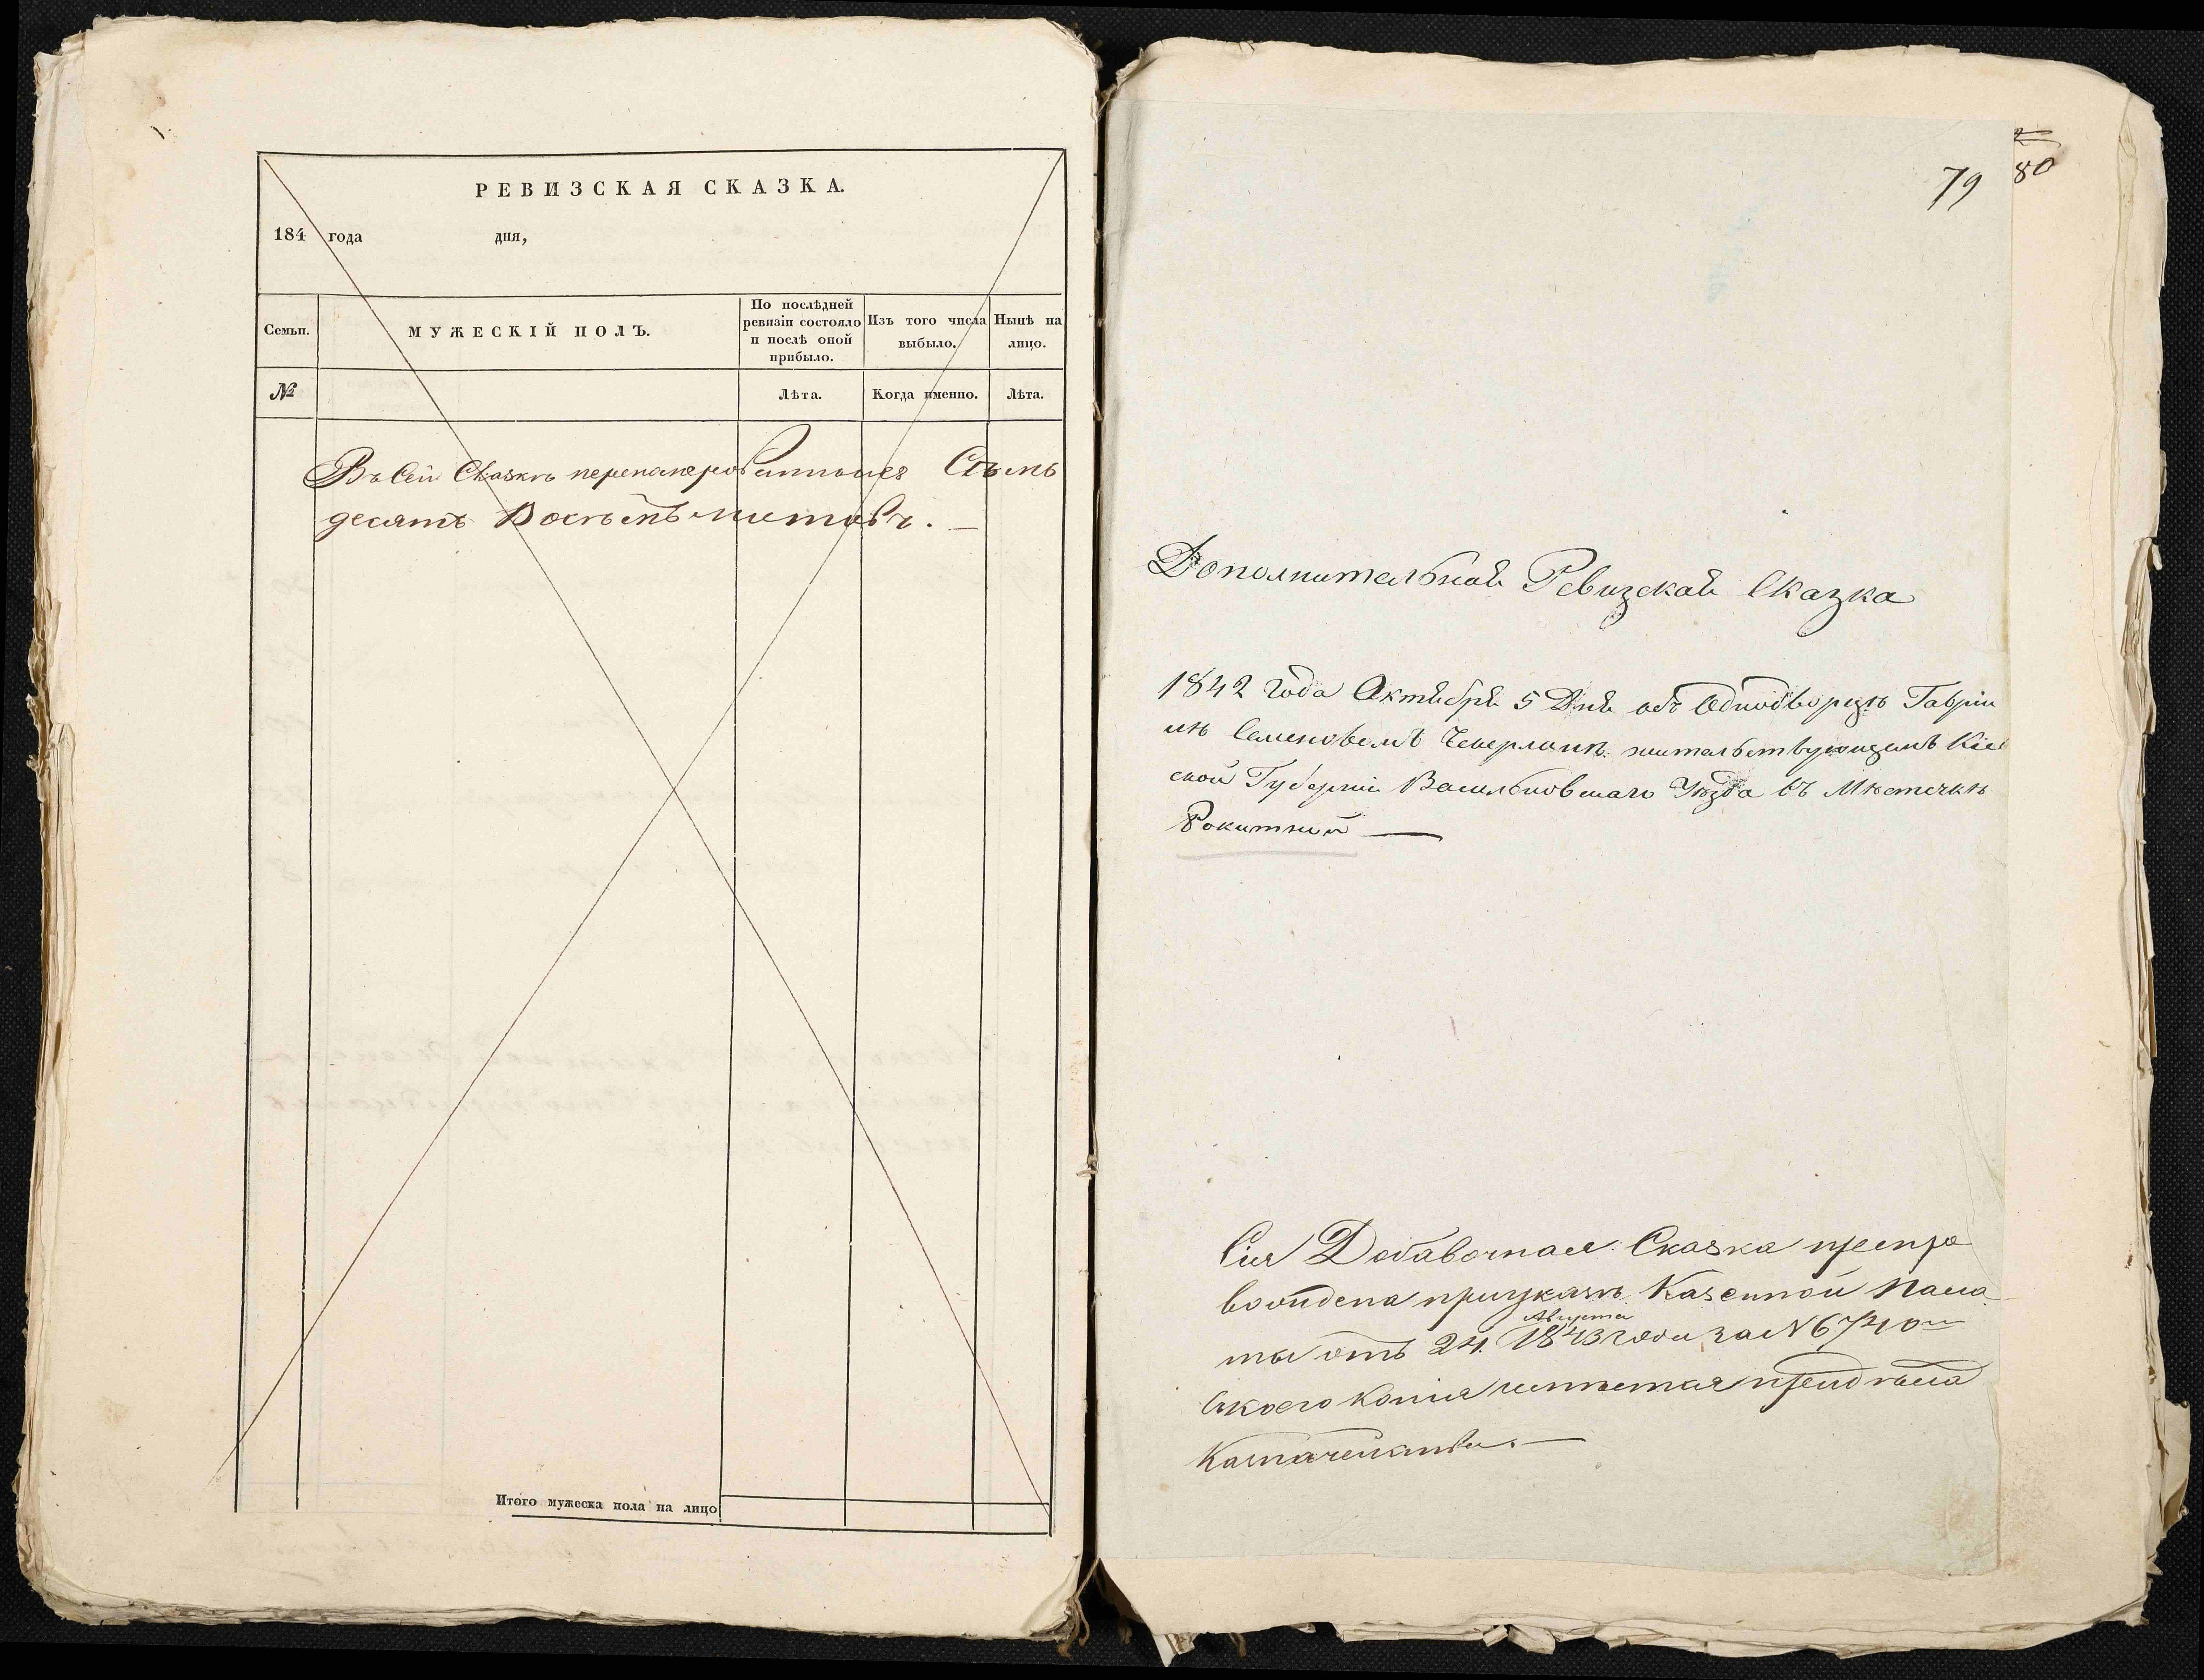 РЕВИЗСКАЯ СКАЗКА.
184 года дня,
Семьи.
МУЖЕСКІЙ ПОЛЪ.
По послѣдней
ревизіи состояло
и послѣ оной
прибыло.
Изъ того числа
выбыло.
Нынѣ на
лицо.
№
Лѣта.
Когда именно.
Лѣта.
Въ Сей Сказкѣ Сѣмь
десятъ Восѣмь листовъ. —
Итого мужеска пола на лицо
79
80
Дополнительная Ревизская Сказка
1842 Года Октября 5 Дня объ Однодворцѣ Гаврии
лѣ Семеновомъ жительствующемъ Кіев
ской Губерніи Васильковскаго Уѣзда въ Мѣстечкѣ
Рокитной —
Сія Добавочная Сказка препро
вождена при указѣ Казенной Пала
Августа
ты отъ 24. 1843 года за N 6740
с коего копія
Казначейства. —